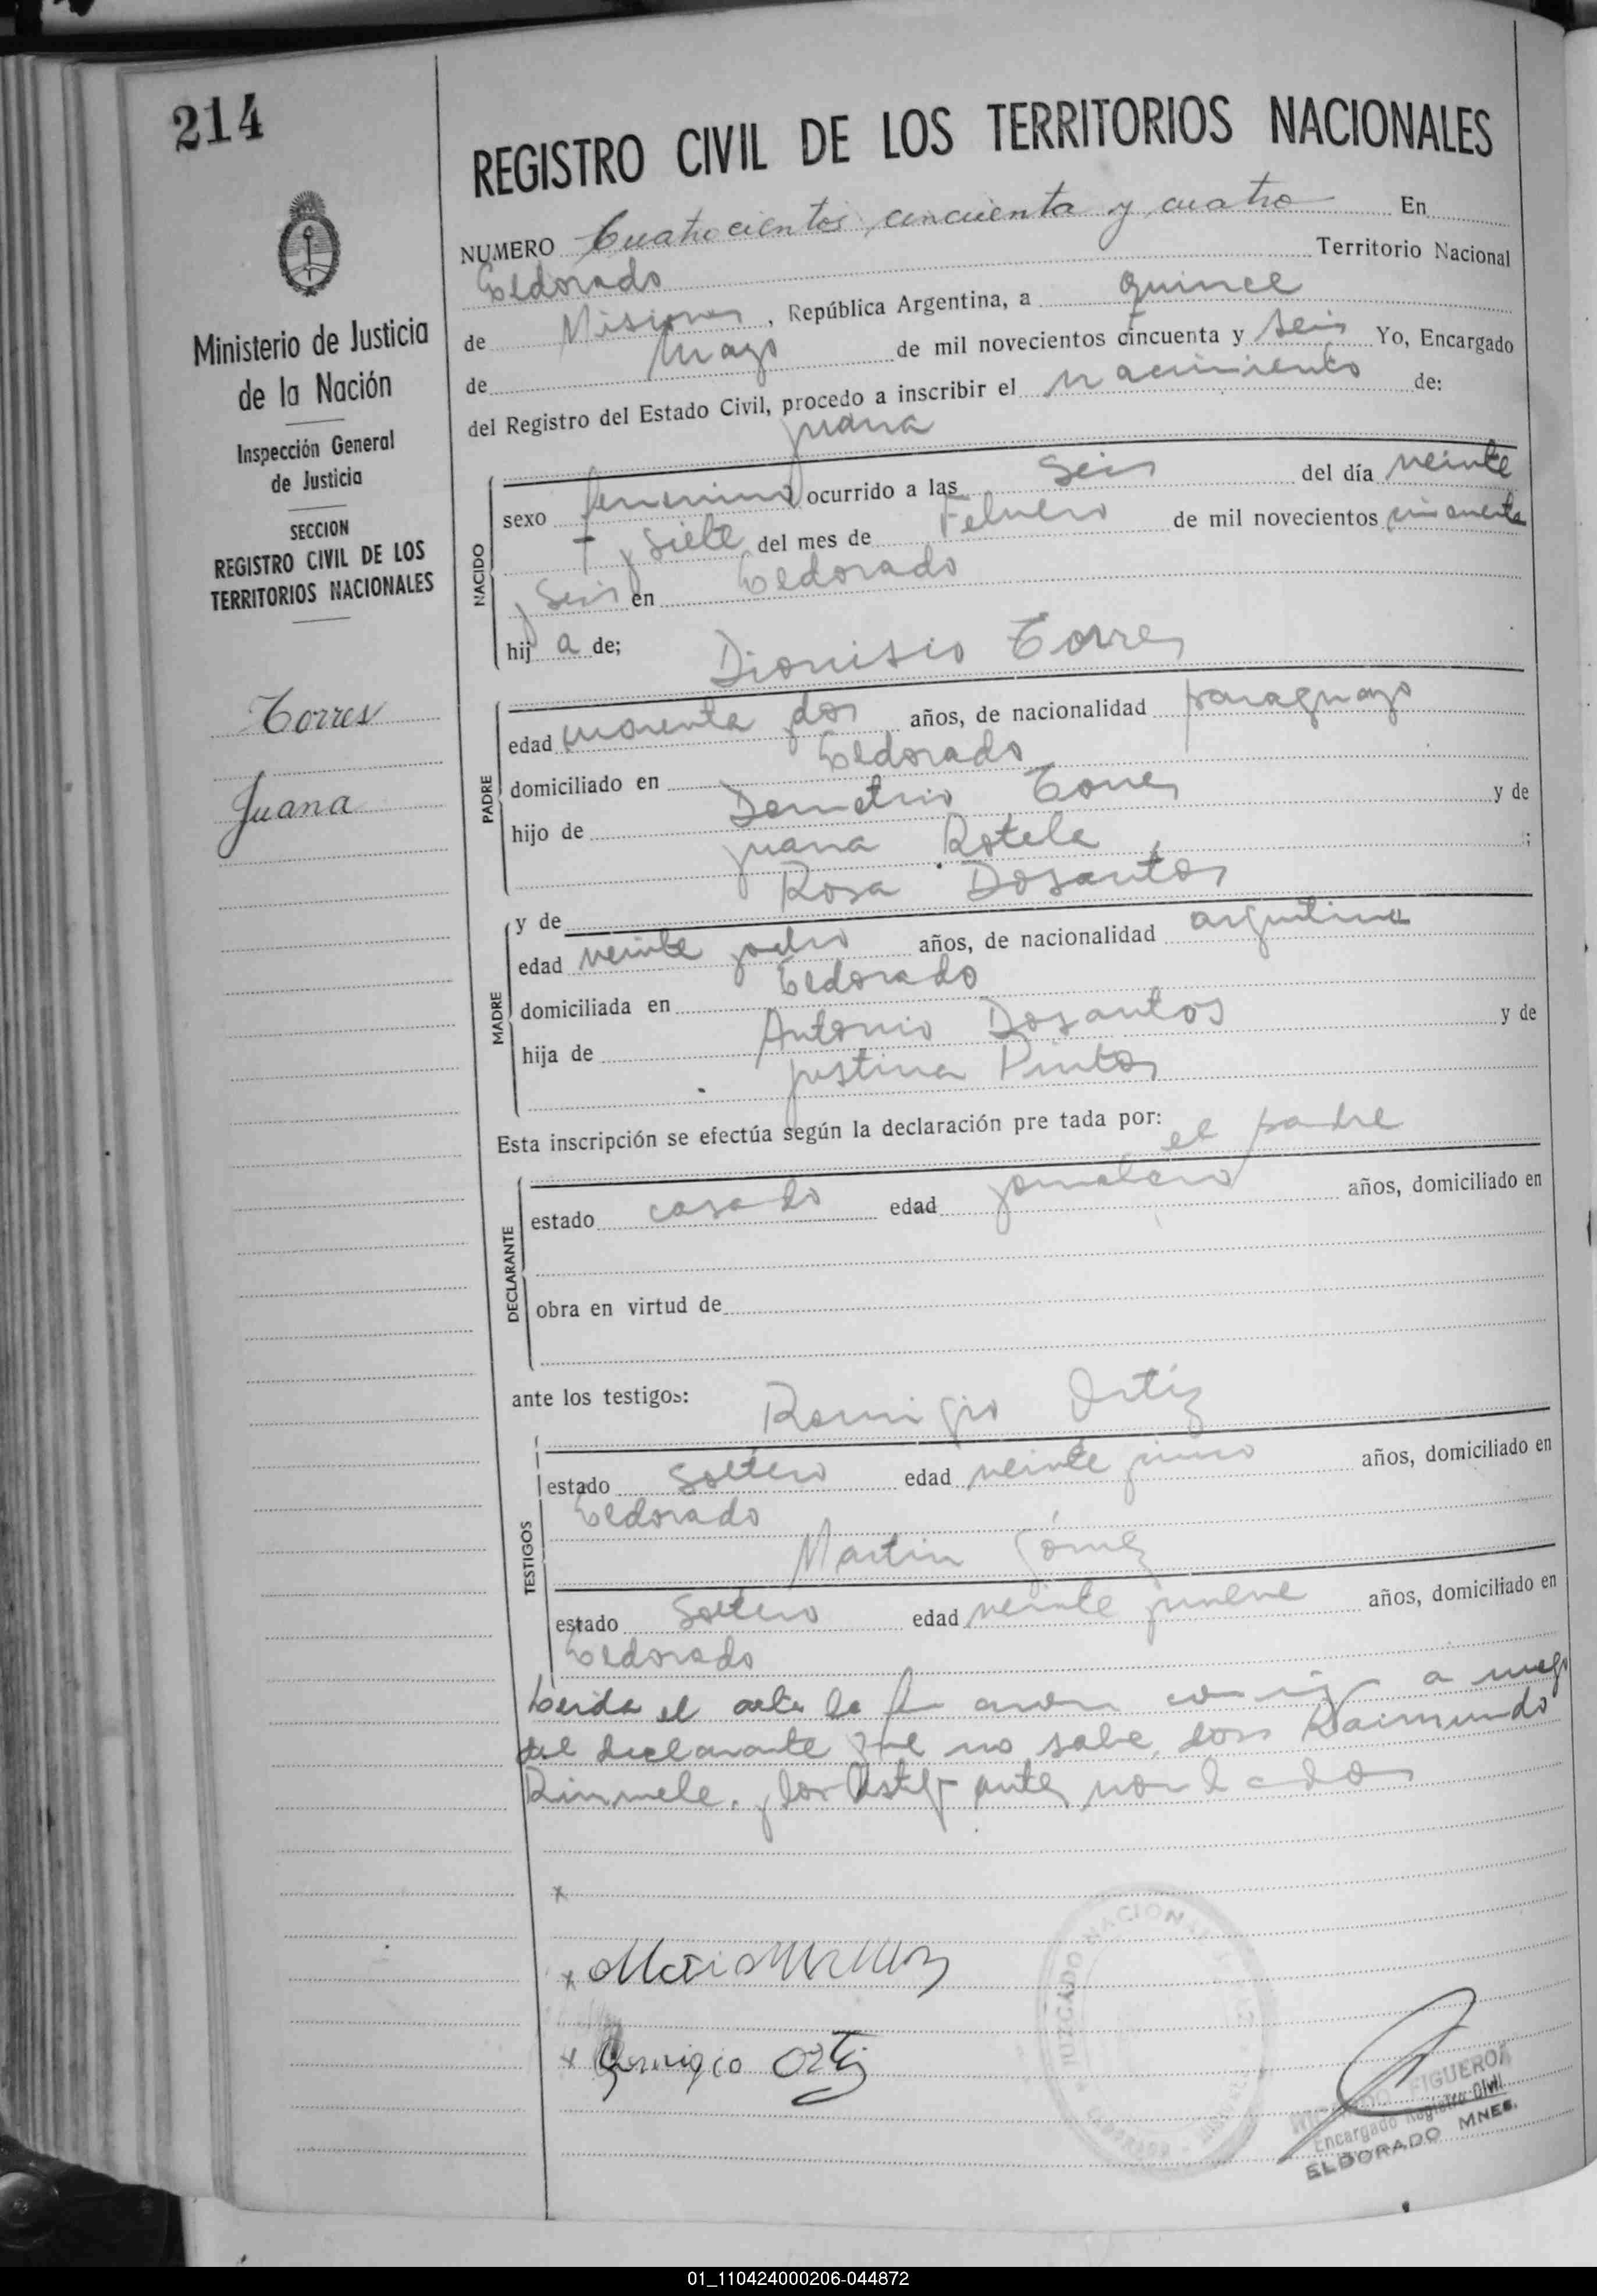 214
REGISTRO CIVIL DE LOS TERRITORIOS NACIONALES
NUMERO Cuatrocientos cincuenta y cuatro En
Eldorado Territorio Nacional
de Misiones, República Argentina, a quince
de Mayo de mil novecientos cincuenta y seis Yo, Encargado
del Registro del Estado Civil, procedo a inscribir el nacimiento de:
Juana
sexo femenino ocurrido a las seis del día veinte
y siete del mes de Febrero de mil novecientos cincuenta
y seis en Eldorado
hij a de; Dionisio Torres
NACIDO
edad cuarenta y dos años, de nacionalidad paraguayo
domiciliado en Eldorado
hijo de Demetrio Torres y de
Juana Rotela ;
PADRE
y de Rosa Dosantos
edad veinte y ocho años, de nacionalidad argentina
domiciliada en Eldorado
hija de Antonio Dosantos y de
Justina Pintos
MADRE
Esta inscripción se efectúa según la declaración pre tada por:
el padre
estado casado edad jornalero años, domiciliado en
obra en virtud de
DECLARANTE
ante los testigos: Remigio Ortiz
estado soltero edad veinte y años, domiciliado en
Eldorado
Martin Gómez
estado soltero edad veinte y nueve años, domiciliado en
Eldorado
TESTIGOS
Leida el acta la a ruego
del declarante que no sabe, don Raimundo
y los
x
x
x Remigio Ortiz
Ministerio de Justicia
de la Nación
Inspección General
de Justicia
SECCION
REGISTRO CIVIL DE LOS
TERRITORIOS NACIONALES
Torres
Juana
JUZGADO NACIONAL
FIGUEROA
Encargado Registro Civil
ELDORADO MNES.
01_110424000206-044872